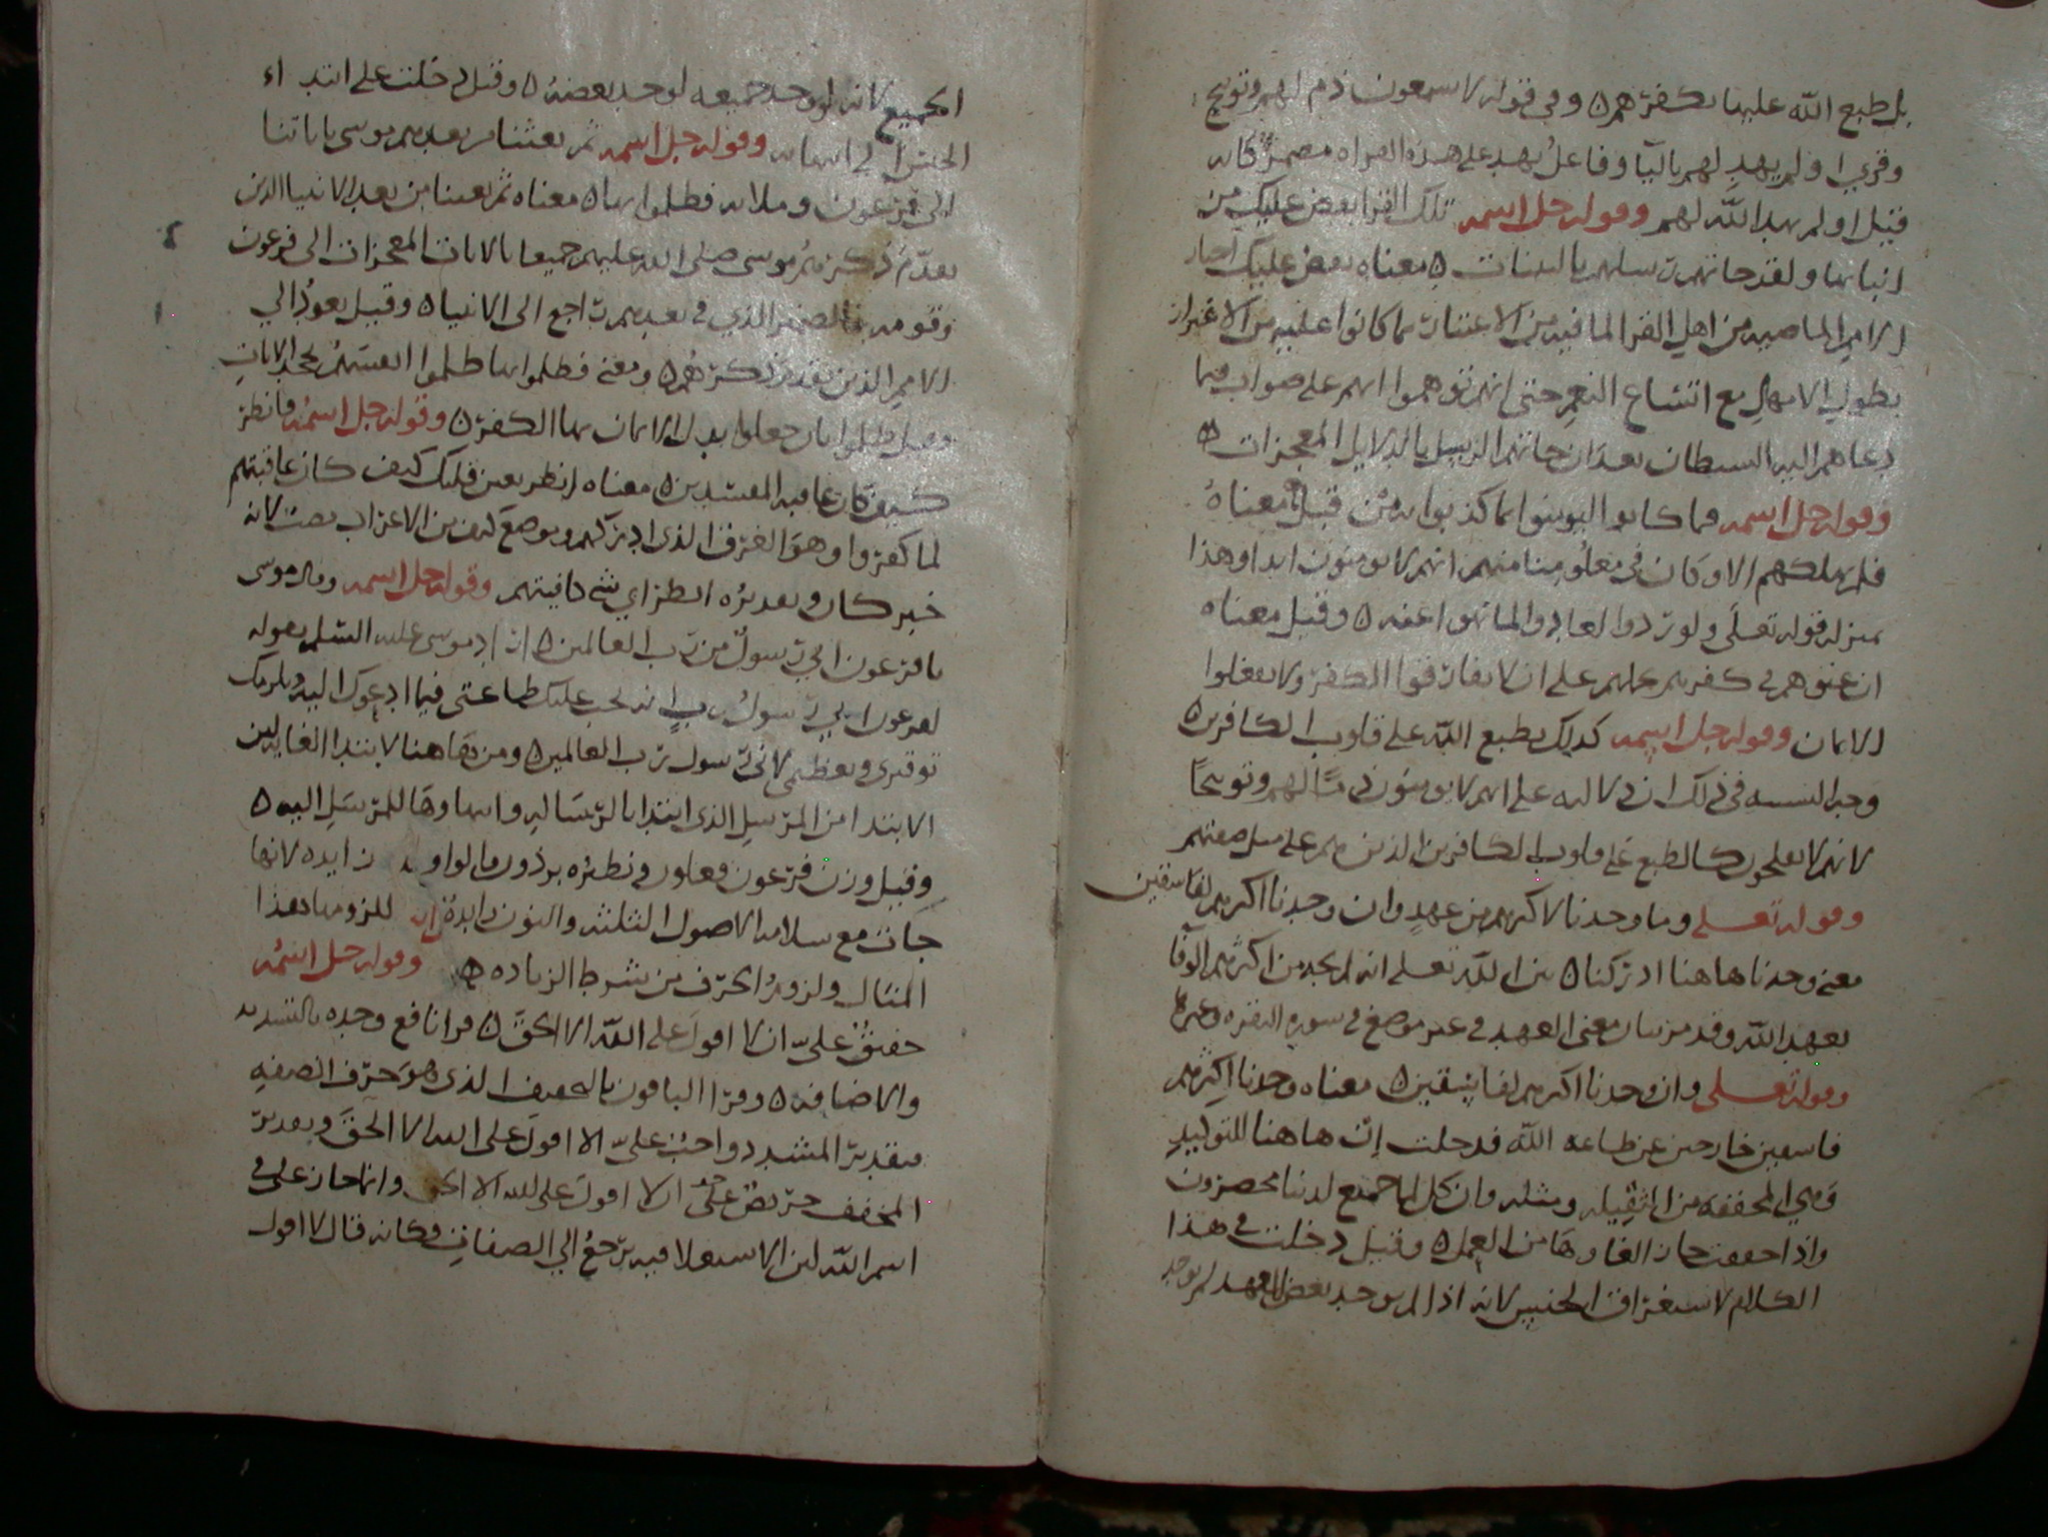 بل طبع الله عليها بكفرهم ه وفي قوله لا يسمعون ذم لهم وتوبيخ
وقري اولم يهد لهم باليا وفاعل يهد على هذه القراه مضمر كانه
قيل اولم يهد الله لهم وقوله جل اسمه تلك القرا نقص عليك من
انبائها ولقد جاتهم رسلهم بالبينات ه معناه نقص عليك اخبار
الامم الماضيه من اهل القرا لما فيه من الاعتبار بما كانوا عليه من الاغترار
بطول الامهال مع اتساع النعم حتى انهم توهموا انهم على صواب فيما
دعاهم اليه الشيطان بعد ان جاتهم الرسل بالدلايل المعجزات ه
وقوله جل اسمه فما كانوا ليومنوا بما كذبوا به من قبل ه معناه
فلم نهلكهم الا وكان في معلومنا منهم انهم لا يومنون ابدا وهذا
بمنزله قوله تعلى ولو ردوا لعادوا لما نهوا عنه ه وقيل معناه
ان عتوهم في كفرهم يحملهم على ان لا يفارقوا الكفر ولا يفعلوا
الايمان وقوله جل اسمه كذلك يطبع الله على قلوب الكافرين ه
وجه التشبيه في ذلك ان دلاله على انهم لا يومنون ذما لهم وتوبيخا
لانهم لا يفلحون كالطبع على قلوب الكافرين الذين هم على مثل صفتهم
وقوله تعلى وما وجدنا لاكثرهم من عهد وان وجدنا اكثرهم لفاسقين
معنى وجدنا هاهنا ادركنا ه بين الله تعلى انه لم يجد من اكثرهم الوفا
بعهد الله وقد مر بيان معنى العهد في غير موضع في سوره البقره وغيرها
وقوله تعلى وان وجدنا اكثرهم لفاسقين ه معناه وجدنا اكثرهم
فاسقين خارجين عن طاعه الله فدخلت ان هاهنا للتوكيد
وهي المخففه من الثقيله ومثله وان كل لما جميع لدينا محضرون
واذا خففت جاز الغاوها من العمل ه وقيل دخلت في هذا
الكلام لاستغراق الجنس لانه اذا لم يوجد بعض العهد لم يوجد
الجميع لانه لو وجد جميعه لوجد بعضه ه وقيل دخلت على ابتداء
الجنس الى انتهائه وقوله جل اسمه ثم بعثنا من بعدهم موسى باياتنا
الى فرعون وملائه فظلموا بها ه معناه ثم بعثنا من بعد الانبيا الذين
تقدم ذكرهم موسى صلى الله عليهم جميعا بالايات المعجزات الى فرعون
وقومه فالضمير الذي في بعدهم راجع الى الانبيا ه وقيل يعود الي
الامم الذين تقدم ذكرهم ه ومعنى فظلموا بها ظلموا انفسهم بجحد الايات
وقيل ظلموا بان جعلوا بدل الايمان بها الكفر ه وقوله جل اسمه فانظر
كيف كان عاقبه المفسدين ه معناه انظر بعين قلبك كيف كان عاقبتهم
لما كفروا وهو الغرق الذي ادركهم وموضع كيف من الاعراب نصب لانه
خبر كان وتقديره انظر اي شي عاقبتهم وقوله جل اسمه وقال موسى
يا فرعون اني رسول من رب العالمين ه اراد موسى عليه السلم بقوله
لفرعون اني رسول رب انه يجب عليك طاعتي فيما ادعوك اليه ويلزمك
توقيري وتعظيمي لاني رسول رب العالمين ه ومن هاهنا لابتدا الغايه لان
الابتدا من المرسل الذي ابتدا بالرساله وانتهاوها للمرسل اليه ه
وقيل وزن فرعون فعلون ونظيره برذون فالواو زايده لانها
جات مع سلامه الاصول الثلثه والنون زايدة للزومها هذا
المثال ولزوم الحرف من شرط الزياده ه وقوله جل اسمه
حقيق علي ان لا اقول على الله الا الحق ه قرا نافع وحده بالتشديد
والاضافه ه وقرا الباقون بالتخفيف الذي هو حرف الصفه
فتقدير المشدد واجب علي الا اقول على الله الا الحق وتقدير
المخفف حريص على ان لا اقول على الله الا الحق وانما جاز على في
اسم الله لان الاستعلا فيه يرجع الي الصفات وكانه قال لا اقول